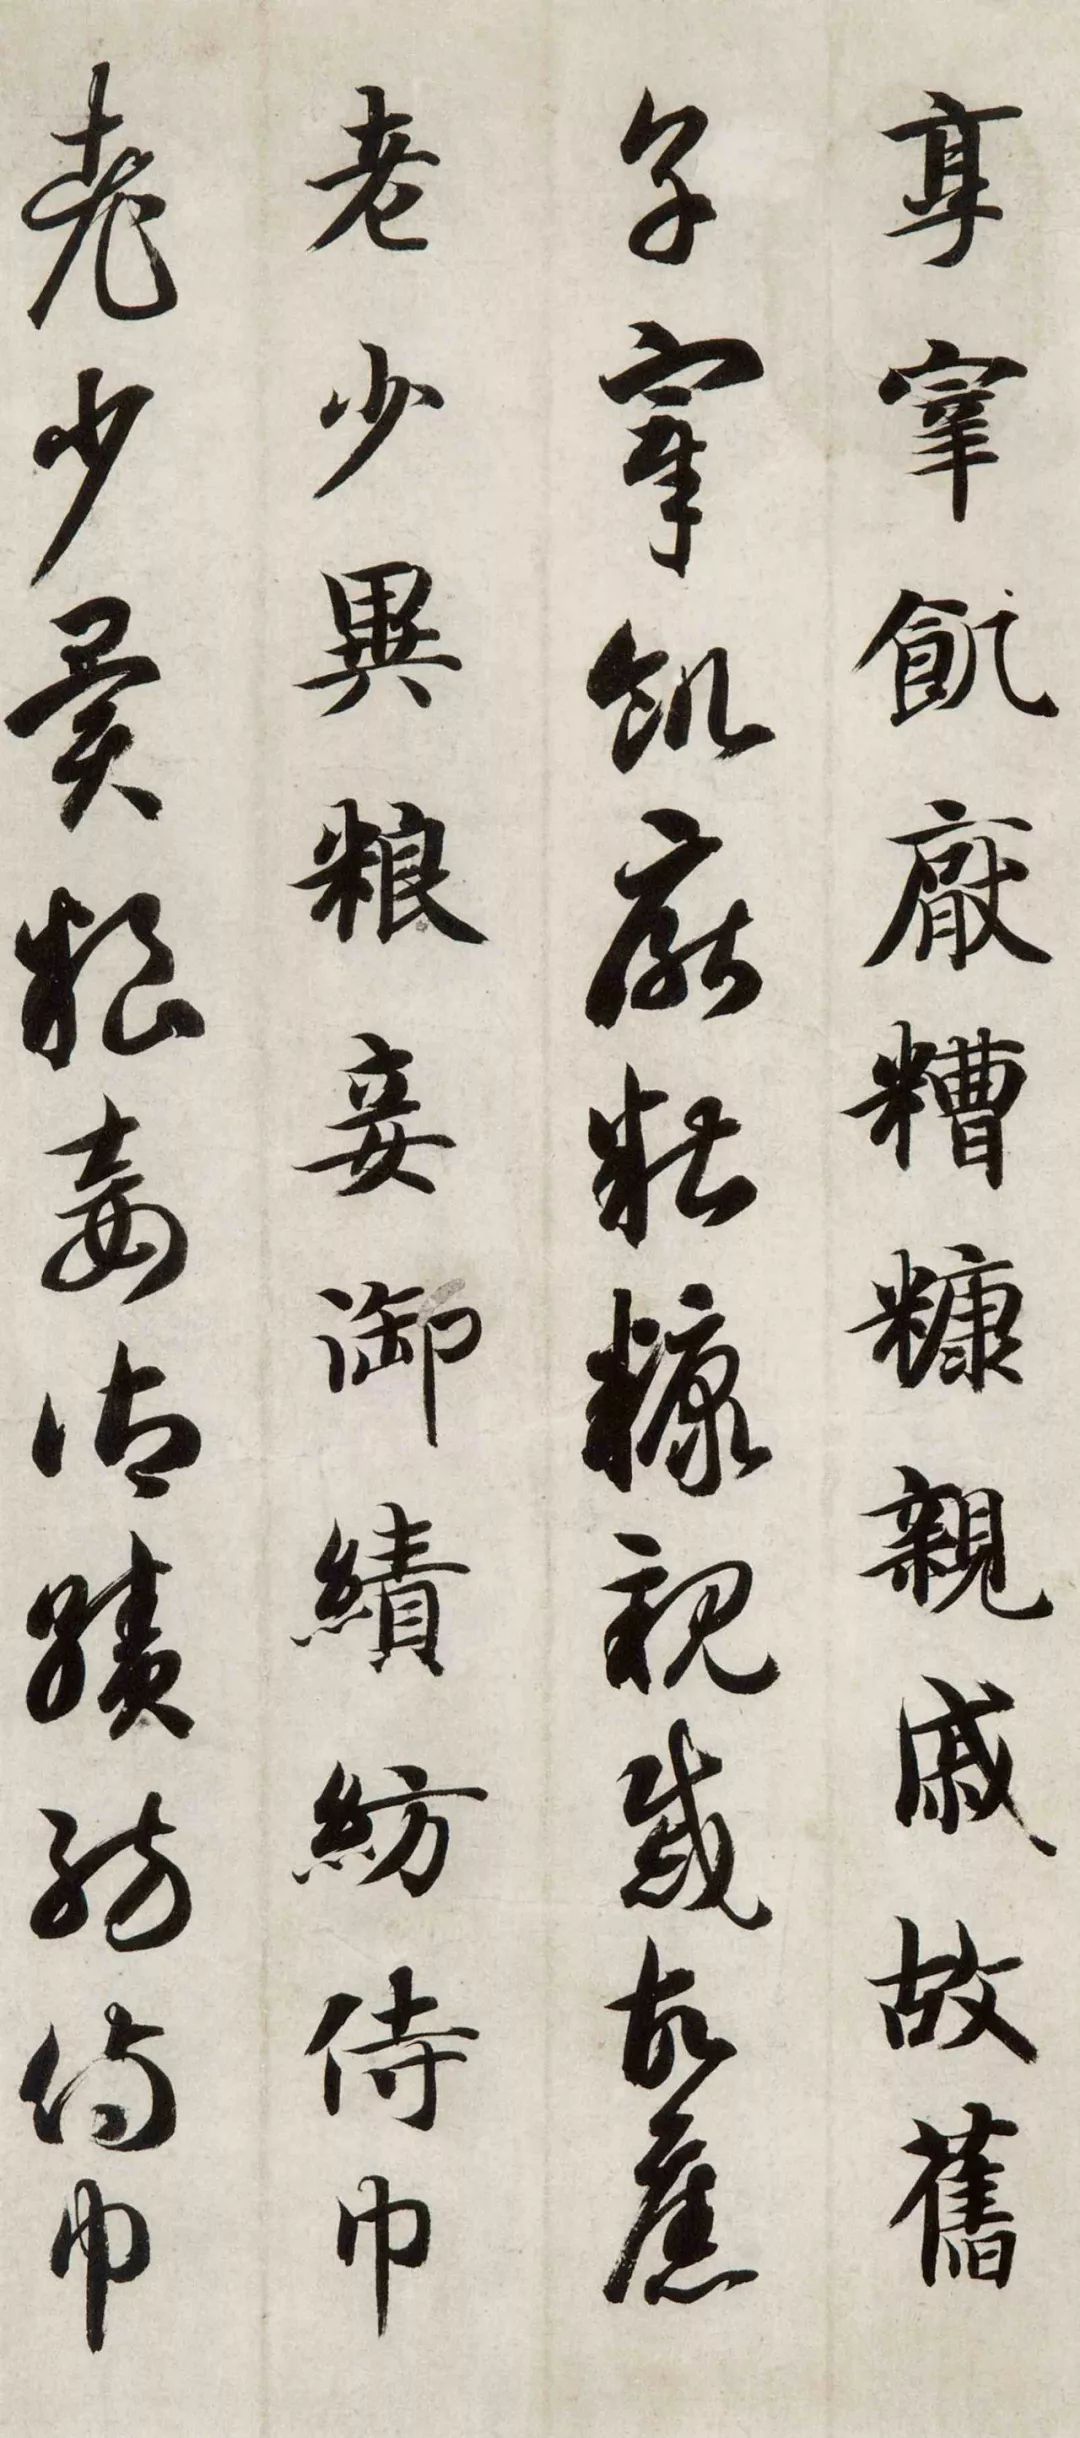 享宰飢厭糟糠親戚故舊
享宰飢厭糟糠親戚故舊
老少異粮妾御績紡侍巾
老少異粮妾御績紡侍巾